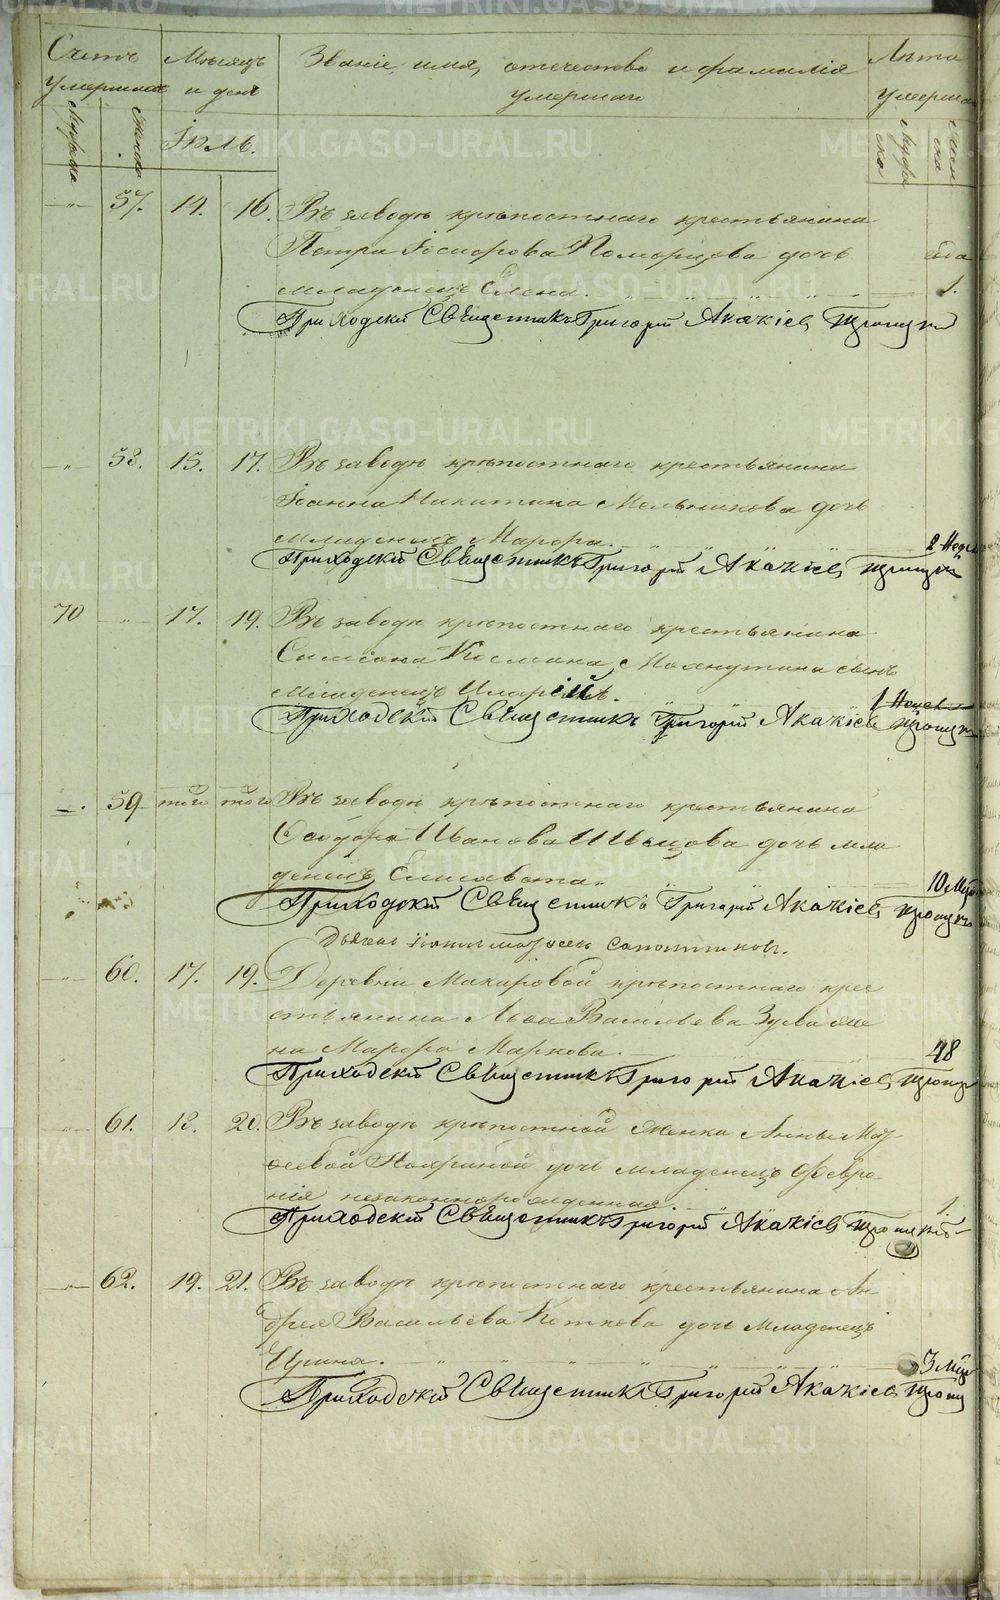 Счетъ Мѣсяцъ Званіе, имя, отечество и фамилія Лѣта
умершихъ и день умершаго умерша
Мужска Женска Іюль. Мужеска Женска
57. 14. 16. Въ заводѣ крѣпостнаго крестьянина
Петра Іосифова Поморцова дочь года
младенецъ Елена. 1.
Приходскій Священникъ Григорій Акакіевъ
58. 15. 17. Въ заводѣ крѣпостнаго крестьянина
Іоанна Никитина Мельникова дочь
младенецъ Марфа. 2 Нед
Приходскій Священникъ Григорій Акакіевъ
70 17. 19. Въ заводѣ крѣпостнаго крестьянина
Симеона Космина сынъ
младенецъ Иларій. 1
Приходскій Священникъ Григорій Акакіевъ
59 того того Въ заводѣ крѣпостнаго крестьянина
Ѳеодора Иванова Швецова дочь мла
денецъ Елисавета. 10 Мѣс
Приходскій Священникъ Григорій Акакіевъ
60. 17. 19. Деревни Макаровой крѣпостнаго крес
тьянина Льва Васильева Зуева же
на Марфа Маркова. 48
Приходскій Священникъ Григорій Акакіевъ
61. 18. 20. Въ заводѣ крѣпостной женки Анны Мат
ѳеевой дочь младенецъ Февро
нія незаконнорожденная.
Приходскій Священникъ Григорій Акакіевъ
62. 19. 21. Въ заводѣ крѣпостнаго крестьянина Ан
дрея Васильева Коткова дочь младенецъ
Ирина. 3 Мѣс
Приходскій Священникъ Григорій Акакіевъ
METRIKI.GASO-URAL.RU